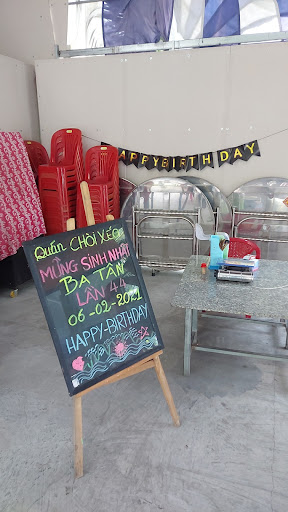 HAPPY BIRTH DAY
Quán CHÒI XẾP
MỪNG SINH NHẬT
BA TÂN
LẦN 44
06-02-2021
HAPPY-BIRTHDAY